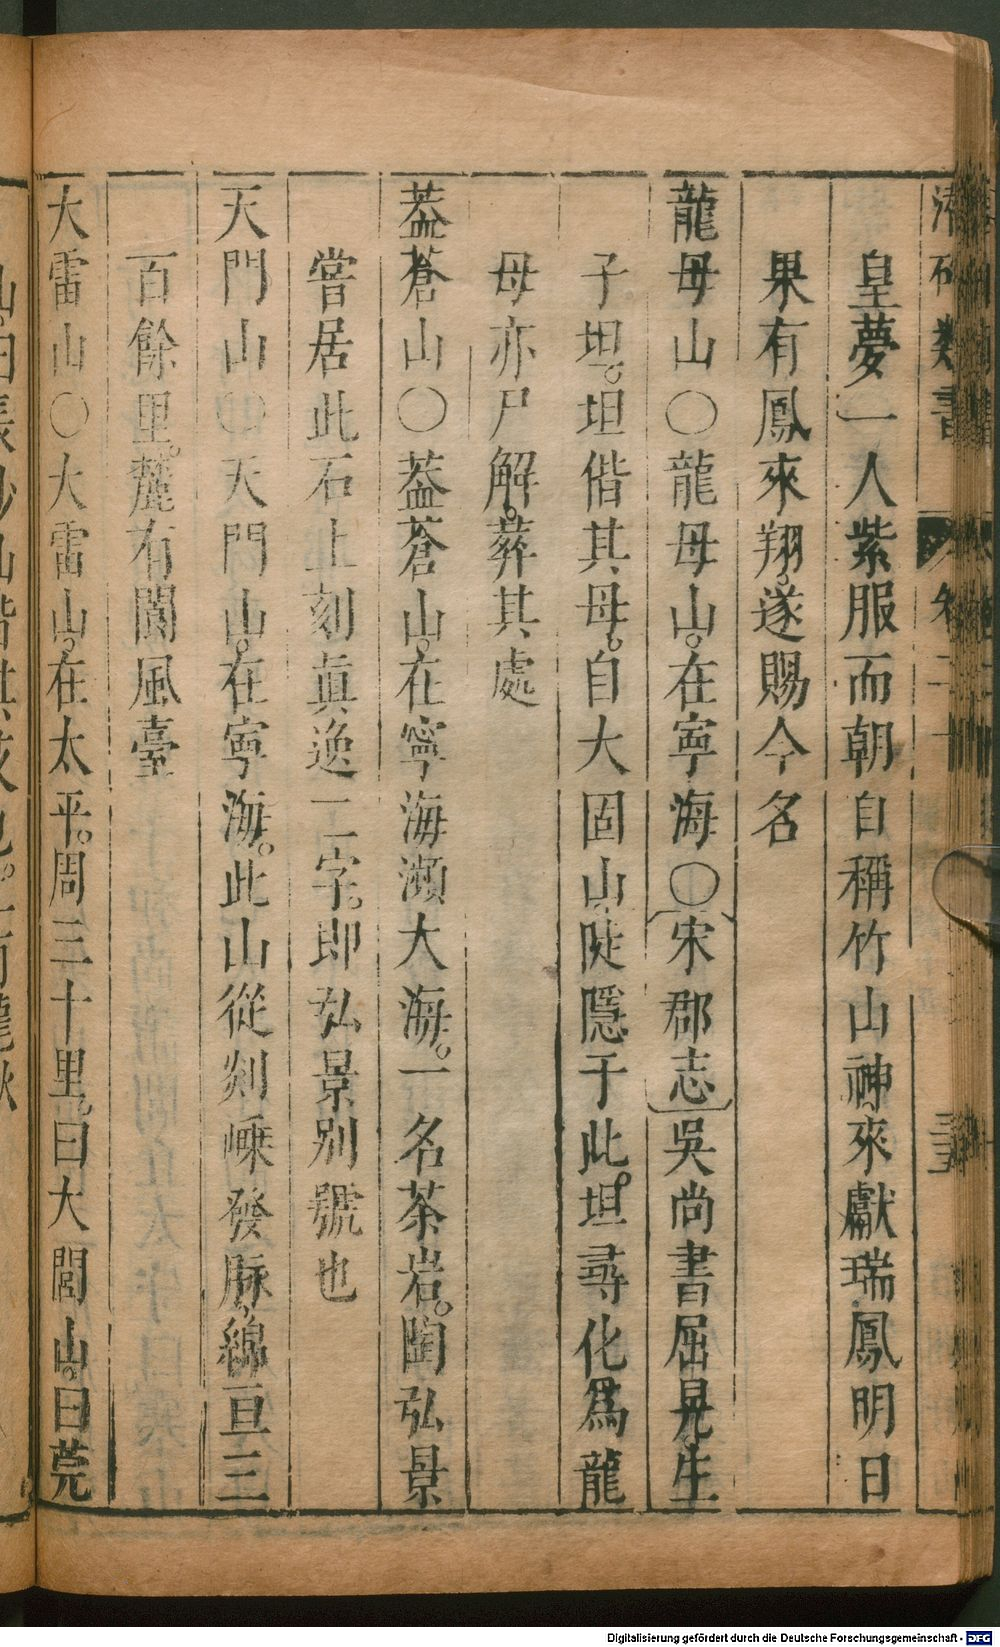 皇夢一人紫服而朝自稱竹山神來獻瑞鳳明日
果有鳳來翔。遂賜今名
龍母山○龍母山。在寧海○宋郡志吳尚書屈晃。生
子坦。坦偕其母。自大固山。陡隱于此。坦尋化爲龍
母亦尸解。葬其處
葢蒼山○葢蒼山。在寧海瀕大海。一名茶岩。陶弘景
嘗居此石上刻眞逸二字。即弘景別號也
天門山○天門山。在寧海。此山從剡嵊發脉。綿亘三
百餘里。麓有閬風臺
大雷山○大雷山。在太平。周三十里。曰大閭山。曰莞
Digitalisierung gefördert durch die Deutsche Forschungsgemeinschaft - DFG